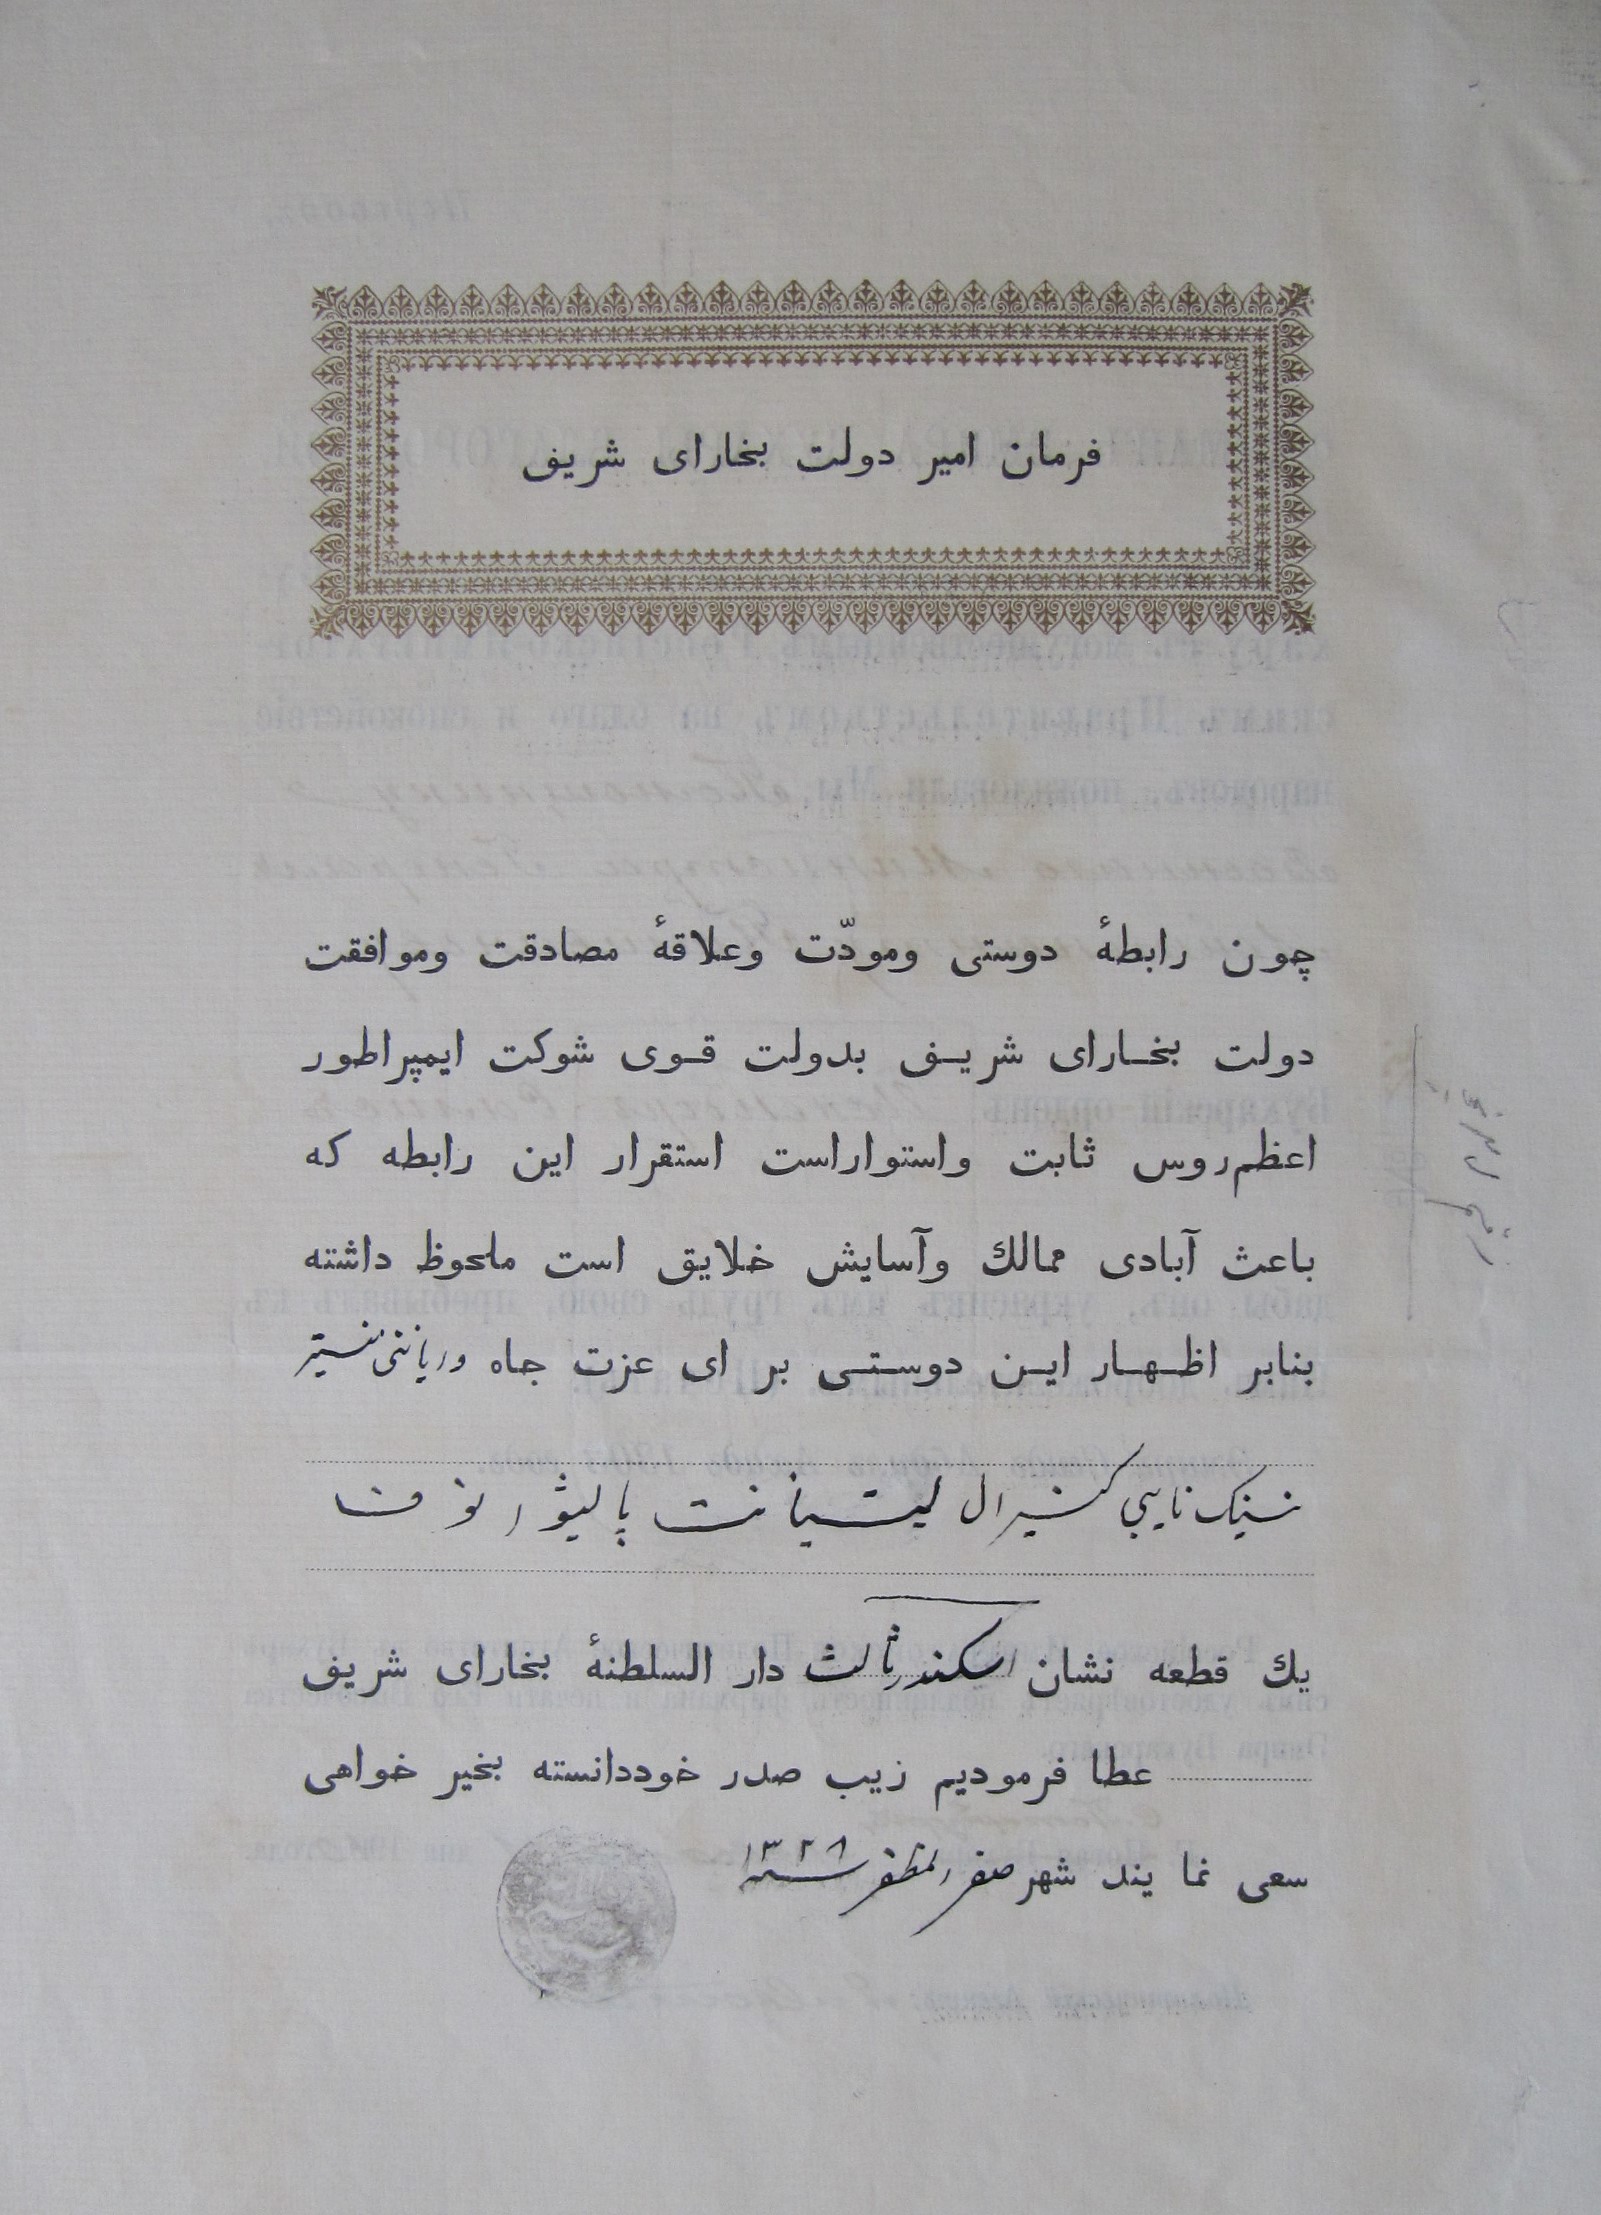 فرمان امیر دولت بخارای شریف
چون رابطهٔ دوستی ومودّت وعلاقهٔ مصادقت وموافقت
دولت بخارای شریف بدولت قوی شوکت ایمپراطور
اعظم روس ثابت واستواراست استقرار این رابطه که
باعث آبادی ممالك وآسایش خلایق است ملحوظ داشته
بنابر اظهار این دوستی بر ای عزت جاه
لیتینانت پالیوانوف
یك قطعه نشان اسکندر ثالث دار السلطنهٔ بخارای شریف
عطا فرمودیم زیب صدر خوددانسته بخیر خواهی
سعی نما یند شهر صفر المظفر سنه ۱۳۲۸